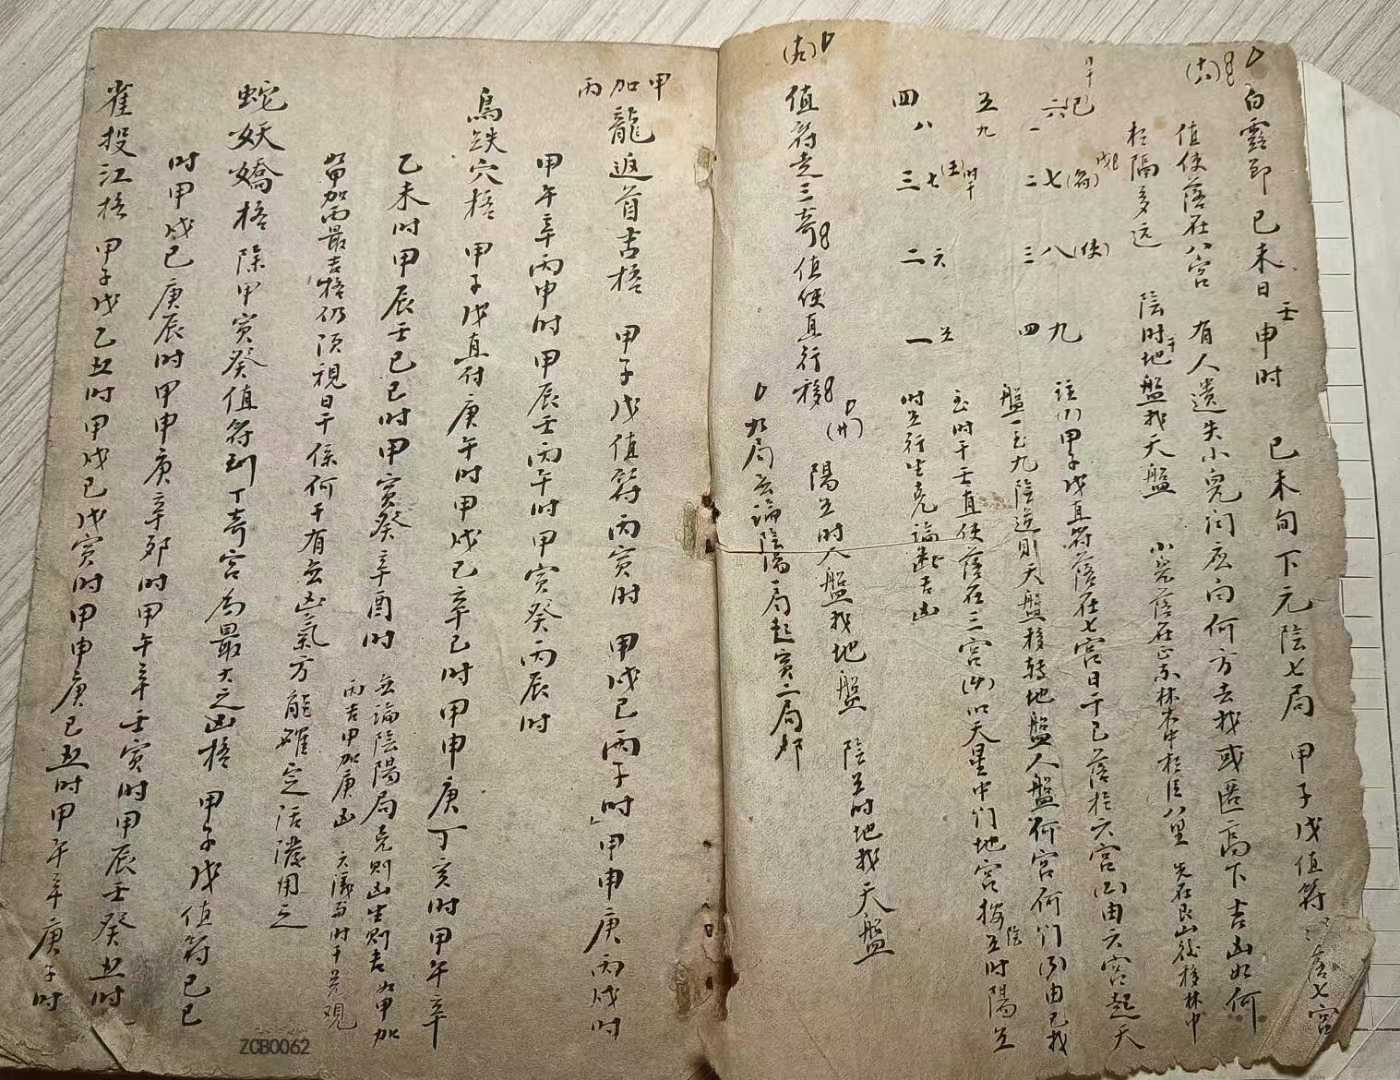 白露節 己未日壬申時 己未旬下元陰七局 甲子戊值符落七宮
(六)
值使落在八宮 有人遺失小兒問應向何方去找或匿高下吉凶如何
相隔多远 陰時干地盤找天盤 小兒落在正東林木中相任八里 先在艮山後移林中
日干
六(己) 七(符) 八(使) 九
一 二 三 四
五 九
七(壬)時干 六 五
四 八 三 二 一
註(1)甲子戊直符落在七宮日干己落於六宮(2)由六宮起天
盤一至九陰逆則天盤移转地盤人盤何宮何们(3)由己找
至時干壬直使落在三宮(4)以天星中门地宮按五时陽五
时五行生克論断吉凶
(九)
值符走三奇 值使直行移
(廿) 陽五时人盤找地盤 陰五时地找天盤
九局無論陰陽一局起寅二局卯
甲加丙
龍返首吉格 甲子戊值符丙寅时 甲戌己丙子时 甲申庚丙戌时
甲午辛丙申时 甲辰壬丙午时 甲寅癸丙辰时
鳥跌穴格 甲子戊直符庚午时甲戌己辛巳时甲申庚丁亥时甲午辛
乙未时甲辰壬己巳时甲寅癸辛酉时 無論陰陽局克則凶生則吉如甲加
丙吉甲加庚凶 六儀與时干並觀
如甲加丙最吉格仍須視日干係何干有無凶氣方能確定活潑用之
蛇妖嬌格 除甲寅癸值符到丁奇宮為最大之凶格 甲子戊值符己巳
时甲戌己庚辰时甲申庚辛卯时甲午辛壬寅时甲辰壬癸丑时
雀投江格 甲子戊乙丑时甲戌己戊寅时甲申庚己丑时甲午辛庚子时
ZCB0062